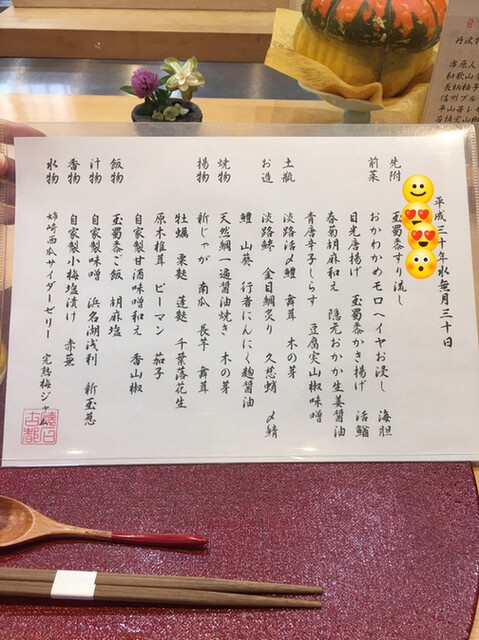 平成三十年水無月三十日
先附 玉蜀黍すり流し
前菜 おかわかめモロヘイヤお浸し 海胆
目光唐揚げ 玉蜀黍かき揚げ 活鰌
春菊胡麻和え 隠元おかか生姜醤油
青唐辛子しらす 豆腐実山椒味噌
土瓶 淡路活〆鱧 舞茸 木の芽
お造 淡路鯵 金目鯛炙り 久慈蛸 〆鯖
鱧 山葵 行者にんにく麹醤油
焼物 天然鯛一遍醤油焼き 木の芽
揚物 新じゃが 南瓜 長芋 舞茸
牡蠣 粟麩 蓮麩 千葉落花生
原木椎茸 ピーマン 茄子
自家製甘酒味噌和え 香山椒
飯物 玉蜀黍ご飯 胡麻塩
汁物 自家製味噌 浜名湖浅利 新玉葱
香物 自家製小梅塩漬け 赤蕪
水物 姉崎西瓜サイダーゼリー 完熟梅ジャム